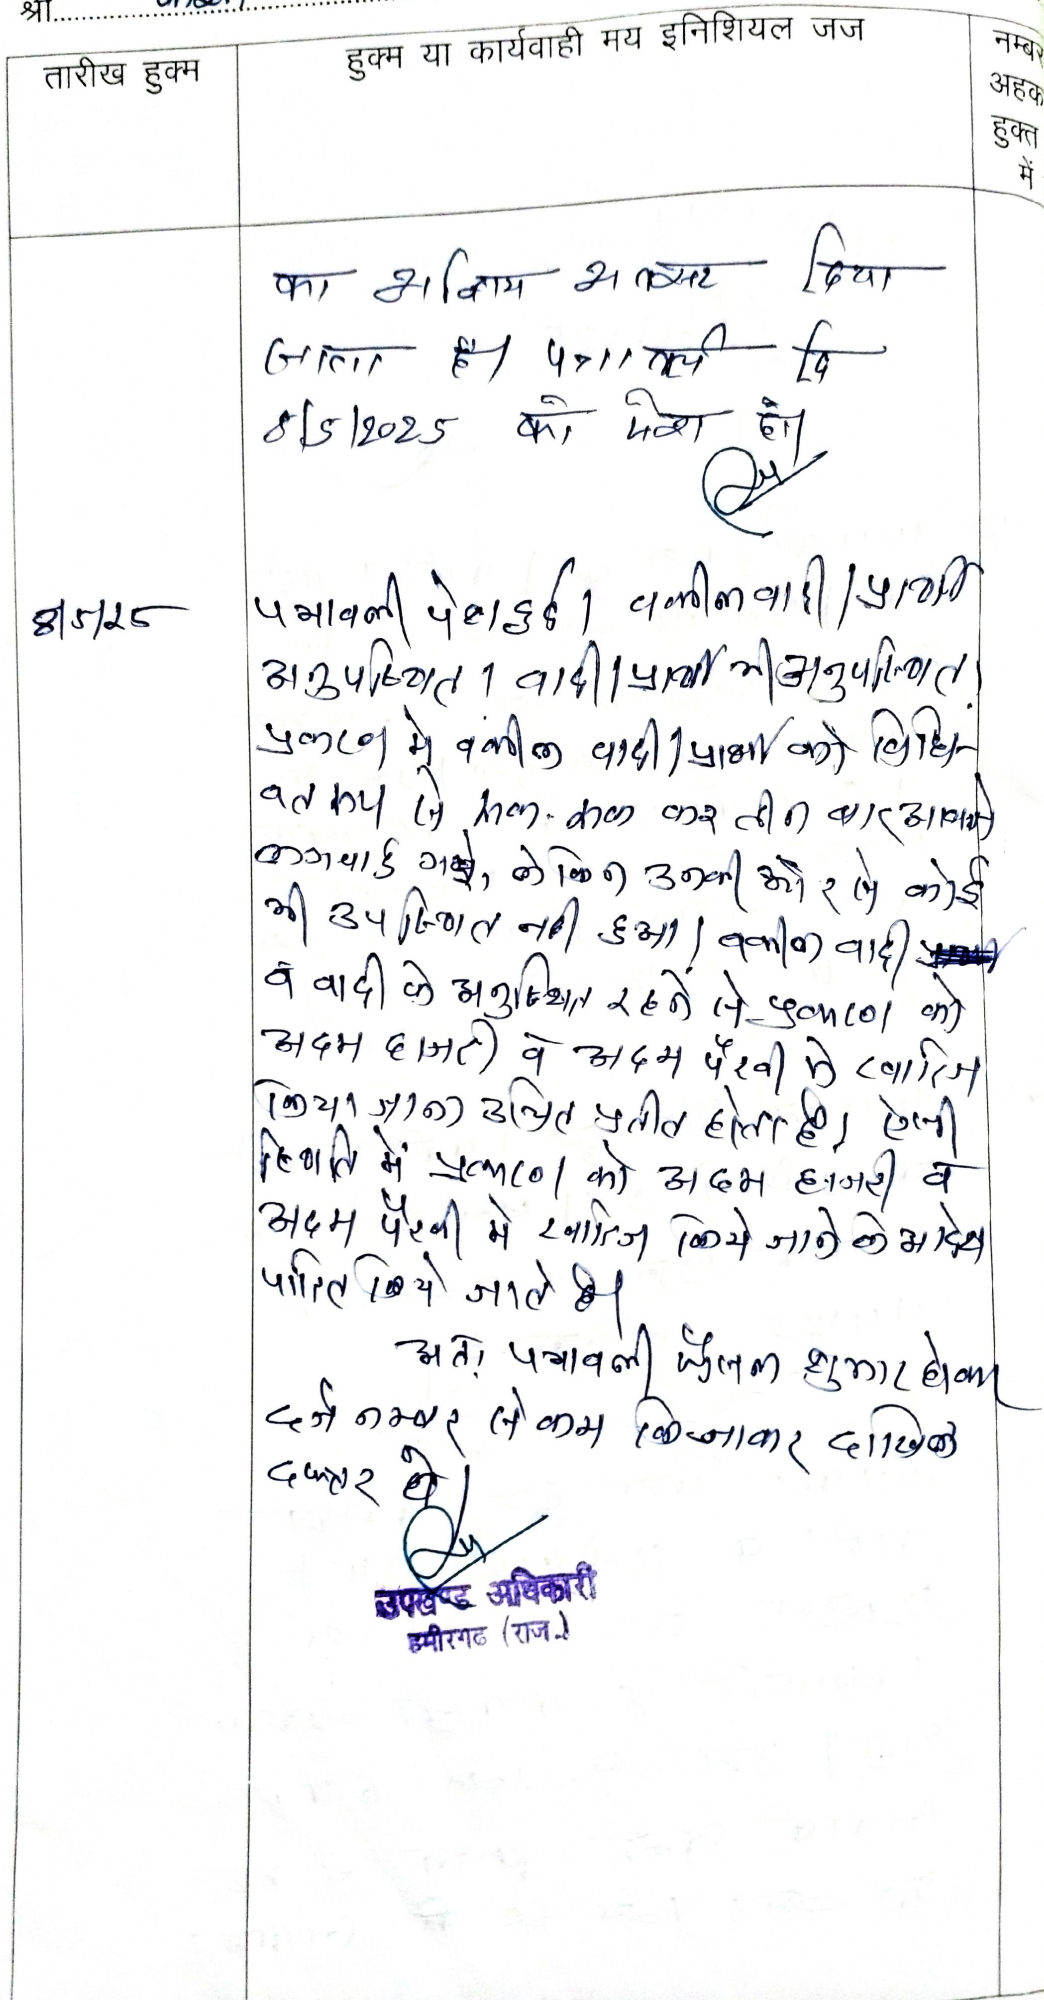 श्री
तारीख हुक्म
हुक्म या कार्यवाही मय इनिशियल जज
नम्बर
अहक
हुक्त
में
का अन्तिम अवसर दिया
जाता है। पत्रावली दि
8/5/2025 को पेश हो।
8/5/25
पत्रावली पेश हुई। वकील वादी/प्रार्थी
अनुपस्थित। वादी/प्रार्थी भी अनुपस्थित।
प्रकरण में वकील वादी/प्रार्थी को विधि-
वत रूप से एक-एक कर तीन बार आवाजे
लगवाई गई, लेकिन उनकी ओर से कोई
भी उपस्थित नही हुआ। वकील वादी
व वादी के अनुस्थित रहने से प्रकरण को
अदम हाजरी व अदम पैरवी मे खारिज
किया जाना उचित प्रतीत होता है। ऐसी
स्थिति में प्रकरण को अदम हाजरी व
अदम पैरवी में खारिज किये जाने के आदेश
पारित किये जाते है।
अतः पत्रावली फैसल शुमार होकर
दर्ज नम्बर से कम कि जाकर दाखिल
दफ्तर हो।
उपखण्ड अधिकारी
हमीरगढ (राज.)